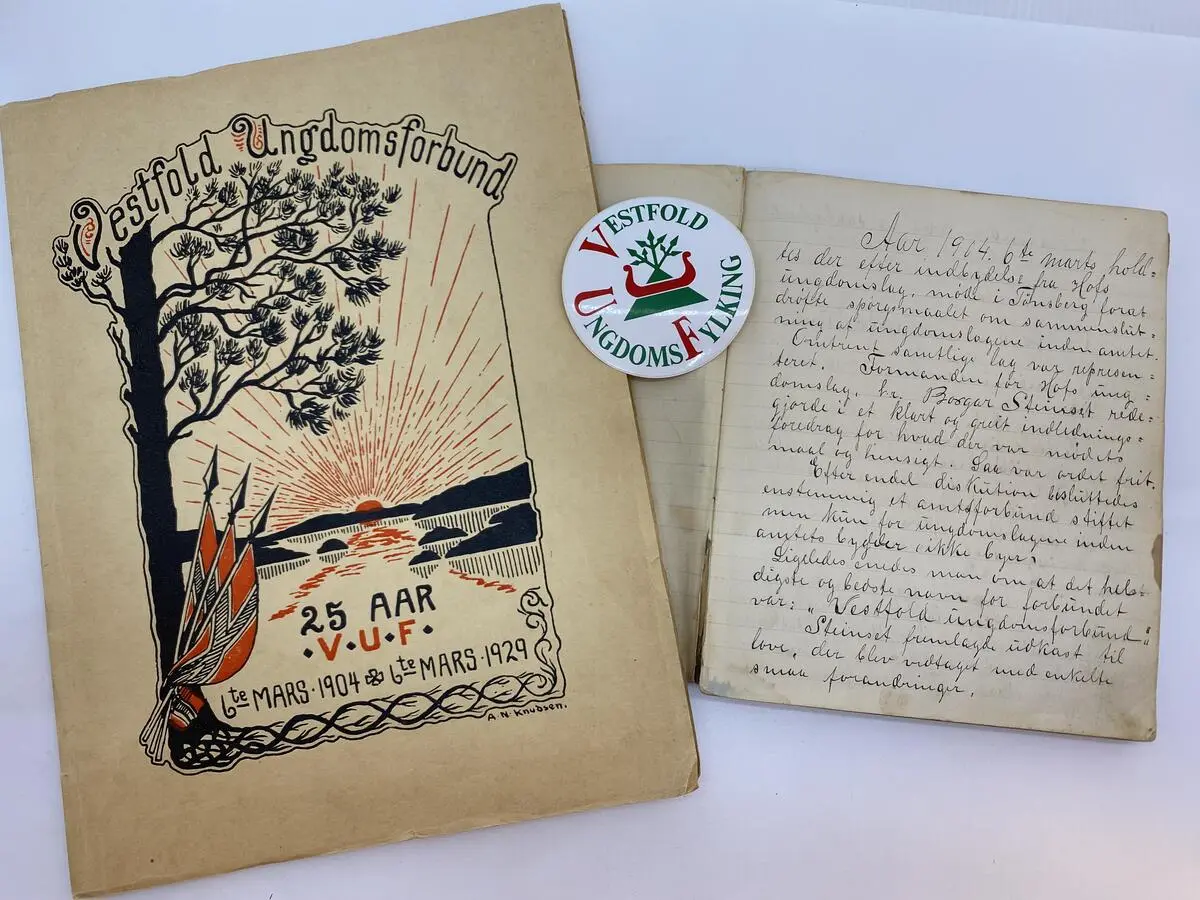 Vestfold Ungdomsforbund
25 AAR
·V·U·F·
6te MARS·1904 6te MARS·1929
A. N. Knudsen.
VESTFOLD
UNGDOMSFYLKING
Aar 1904. 6te marts hold=
tes der efter indbydelse fra Hofs
ungdomslag, møde i Tønsberg forat
drøfte spørgsmaalet om sammenslut=
ning af ungdomslagene inden amtet.
Omtrent samtlige lag var represen=
teret. Formanden for Hofs ung=
domslag, hr. Borgar Steinset rede=
gjorde i et klart og greit indlednings=
foredrag for hvad der var mødets
maal og hensigt. Saa var ordet frit.
Efter endel diskution besluttedes
enstemmig et amtsforbund stiftet
men kun for ungdomslagene inden
amtets bygder (ikke byer).
Ligeledes enedes man om at det hel=
digste og bedste navn for forbundet
var: „Vestfold ungdomsforbund“
Steinset fremlagde udkast til
love, der blev vedtaget med enkelte
smaa forandringer.